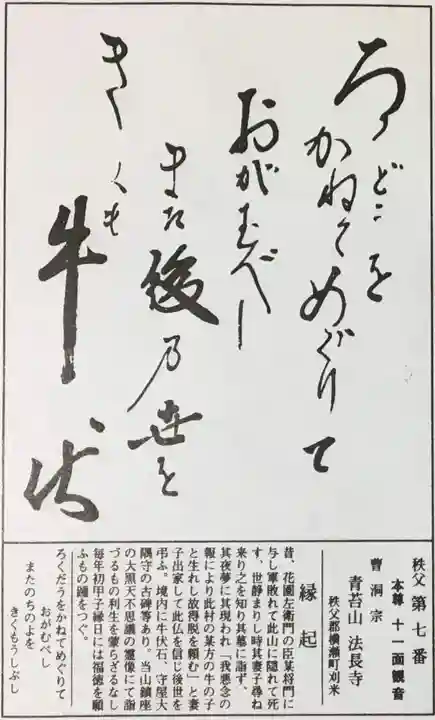 ろくどうを
かねてめぐりて
おがむべし
また後乃世を
きくも牛ぶし
秩父 第七番
本尊 十一面観音
曹洞宗
青苔山 法長寺
秩父郡横瀬町刈米
縁起
昔、花園左衛門の臣某将門に
与し軍敗れて此山に隠れて死
す、世静まりし時其妻子尋ね
来り之を知り其墓に詣ず、
其夜夢に其現われ「我悪念の
報により此村の某方の牛の子
と生れし故得脱を頼む」と妻
子出家して此仏を信じ後世を
弔ふ。境内に牛伏石、守屋大
隅守の古碑等あり。当山鎮座
の大黒天不思議の霊像にて詣
づるもの利生を蒙らざるなし
毎年初甲子縁日には福徳を願
ふもの踵をつぐ。
ろくだうをかねてめぐりて
おがむべし
またのちのよを
きくもうしぶし